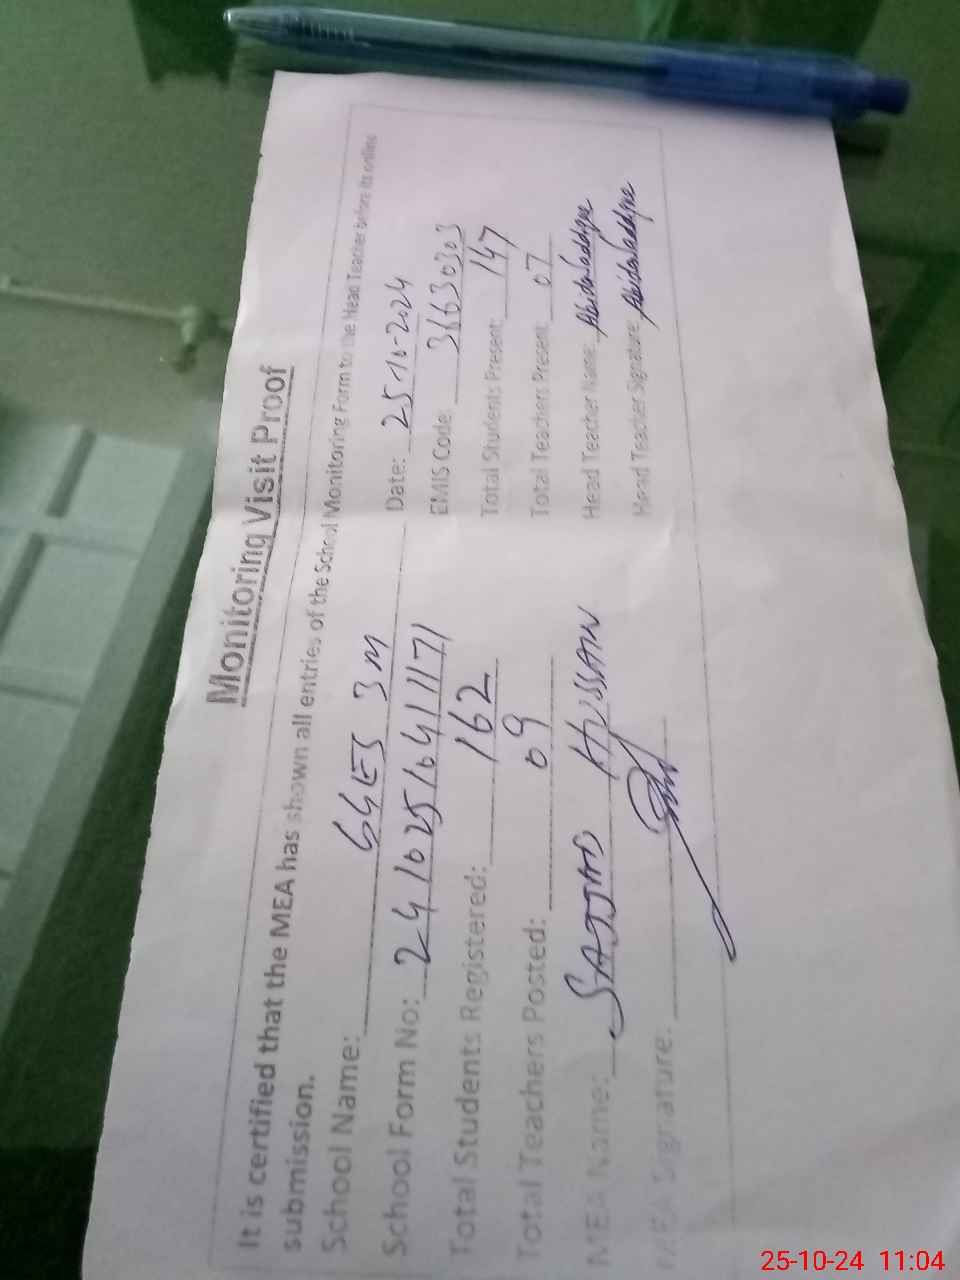 Monitoring Visit Proof
It is certified that the MEA has shown all entries of the School Monitoring Form to the Head Teacher before its online
submission.
School Name: GGES 3M Date: 25-10-2024
School Form No: 24102510411171 EMIS Code: 36630303
Total Students Registered: 162 Total Students Present: 147
Total Teachers Posted: 09 Total Teachers Present: 07
MEA Name: SAJJAD HUSSAIN Head Teacher Name: Abida Saddique
MEA Signature: Head Teacher Signature: Abida Saddique
25-10-24 11:04